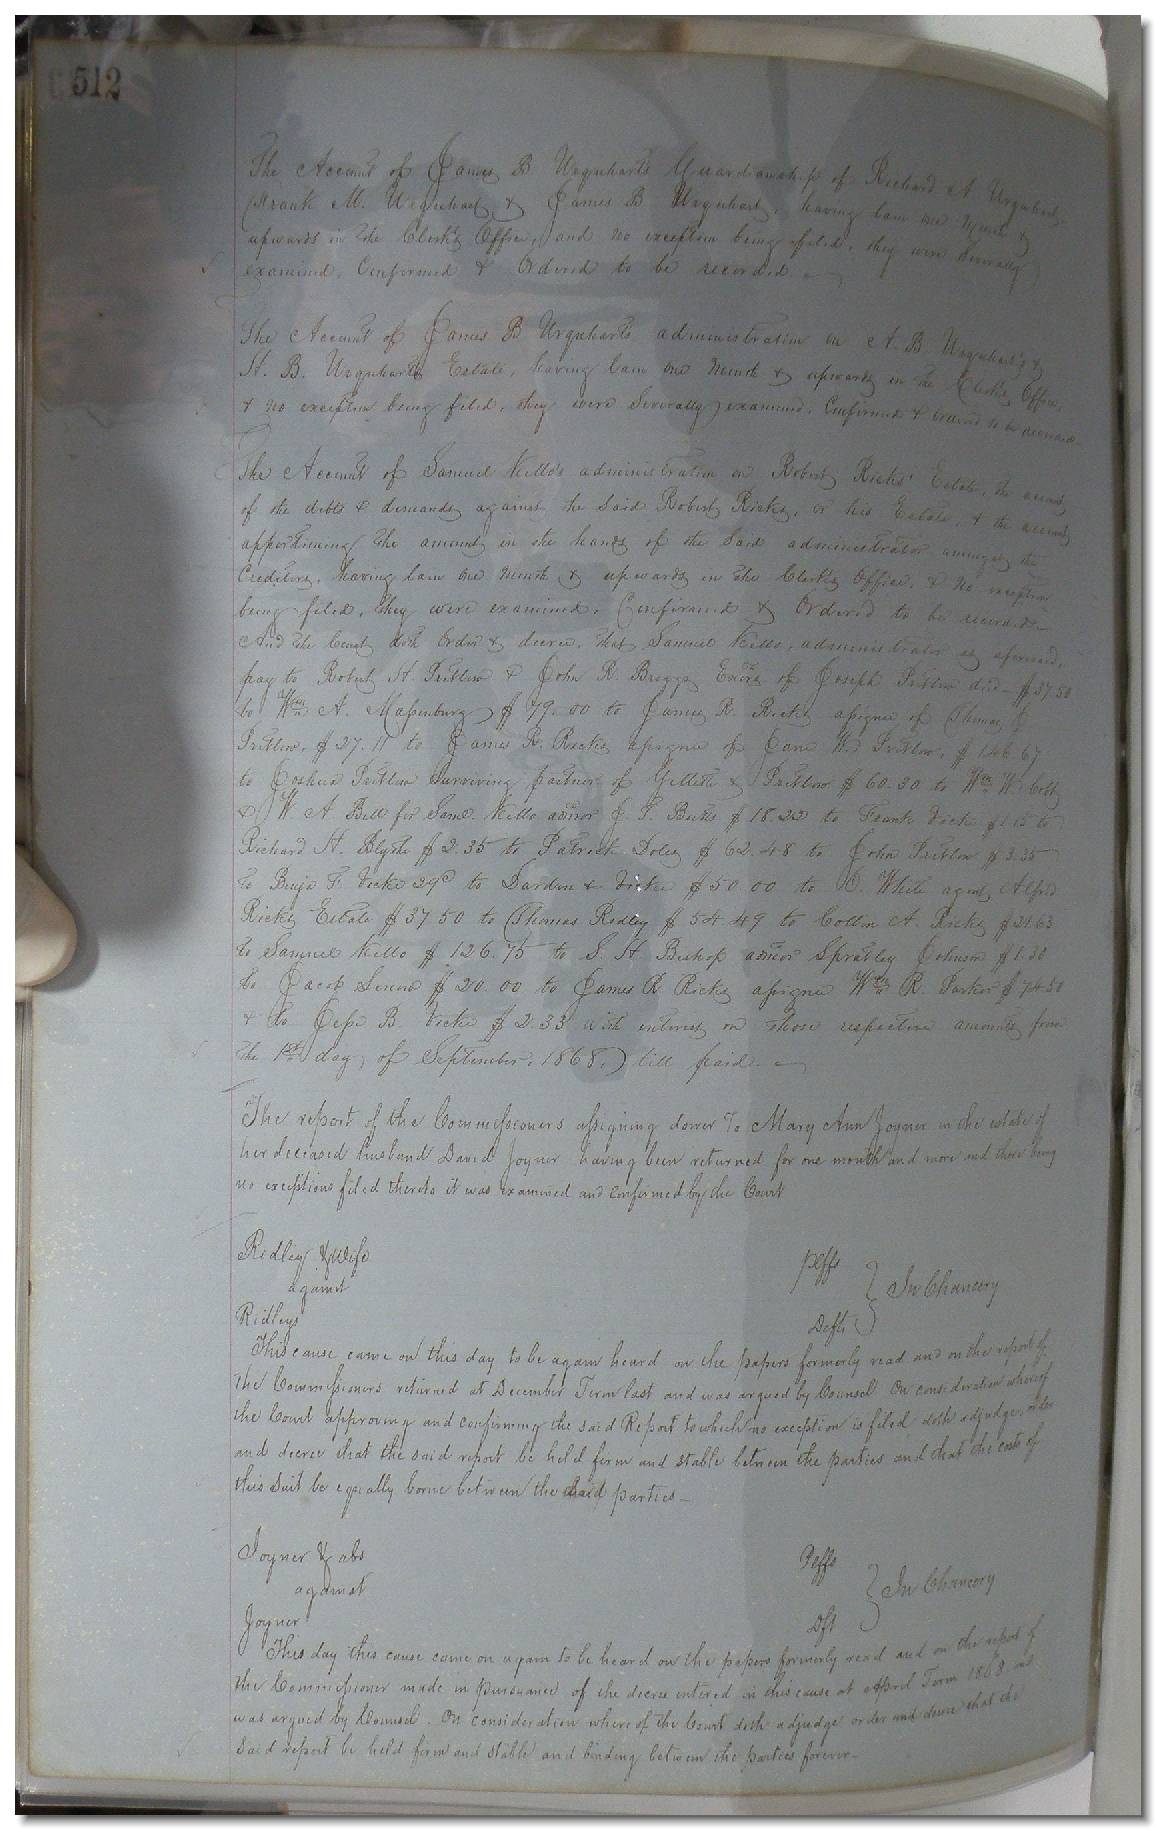 512
The Account of James B Urquharts Guardianship of Richard A Urquhart,
Frank M. Urquhart, & James B Urquhart, having lain one Month &
upwards in the Clerk's Office, and no exception being filed, they were severally
examined, Confirmed & Ordered to be recorded.
The Account of James B Urquharts administration on A. B. Urquhart's &
St. B. Urquharts Estate, having lain one Month & upwards in the Clerks Office,
& no exception being filed, they were severally examined, Confirmed & Ordered to be recorded.
The Account of Samuel Kello's administration on Robert Ricks' Estate, the account
of the debts & demands against the Said Robert Ricks, or his Estate, & the account
apportioning the amount in the hands of the Said administrator amongst the
Creditors, having lain one Month & upwards in the Clerks Office, & no exception
being filed, they were examined, Confirmed & Ordered to be recorded
And the Court doth Order & decree, that Samuel Kello, administrator as aforesaid,
pay to Robert H. Pretlow & John R. Briggs Exors of Joseph Pretlow decd $37.50
to Wm A. Massenburg $79.00 to James R. Ricks assignee of Thomas J
Pretlow, $27.11 to James R. Ricks assignee of Jane W. Pretlow, $146.67
to Joshua Pretlow Surviving partner of Gillette & Pretlow $60.30 to Wm W Cobb
& W A Bell for Saml Kello admor J. T. $18.22 to Frank Vick $1.15 to
Richard H. Blythe $2.35 to Patrick Doles $62.48 to John Pretlow $3.35
to Benja F. Vick 29c to Darden & Vick $50.00 to O. White agent Alfred
Ricks Estate $37.50 to Thomas Ridley $54.49 to Collin A. Ricks $21.63
to Samuel Kello $126.75 to S. H. Bishop admor Spratley Johnson $1.30
to Jacob $20.00 to James R Ricks assignee Wm R. Parker $74.50
& to Jesse B. Vick $2.33 with interest on those respective amounts from
the 1st day of September, 1868, till paid.
The report of the Commissioners assigning dower to Mary Ann Joyner in the estate of
her deceased husband David Joyner having been returned for one month and more and there being
no exceptions filed thereto it was examined and confirmed by the Court
Ridley & wife Plffs
against } In Chancery
Ridleys Defts
This cause came on this day to be again heard on the papers formerly read and on the report of
the Commissioners returned at December Term last and was argued by Counsel On consideration whereof
the Court approving and confirming the said Report to which no exception is filed doth adjudge, order
and decree that the said report be held firm and stable between the parties and that the costs of
this Suit be equally borne between the said parties—
Joyner & als Plffs
against } In Chancery
Joyner Dft
This day this cause came on again to be heard on the papers formerly read and on the report of
the Commissioner made in pursuance of the decree entered in this cause at April Term 1868 and
was argued by Counsel. On consideration whereof the Court doth adjudge order and decree that the
Said report be held firm and stable and binding between the parties forever—